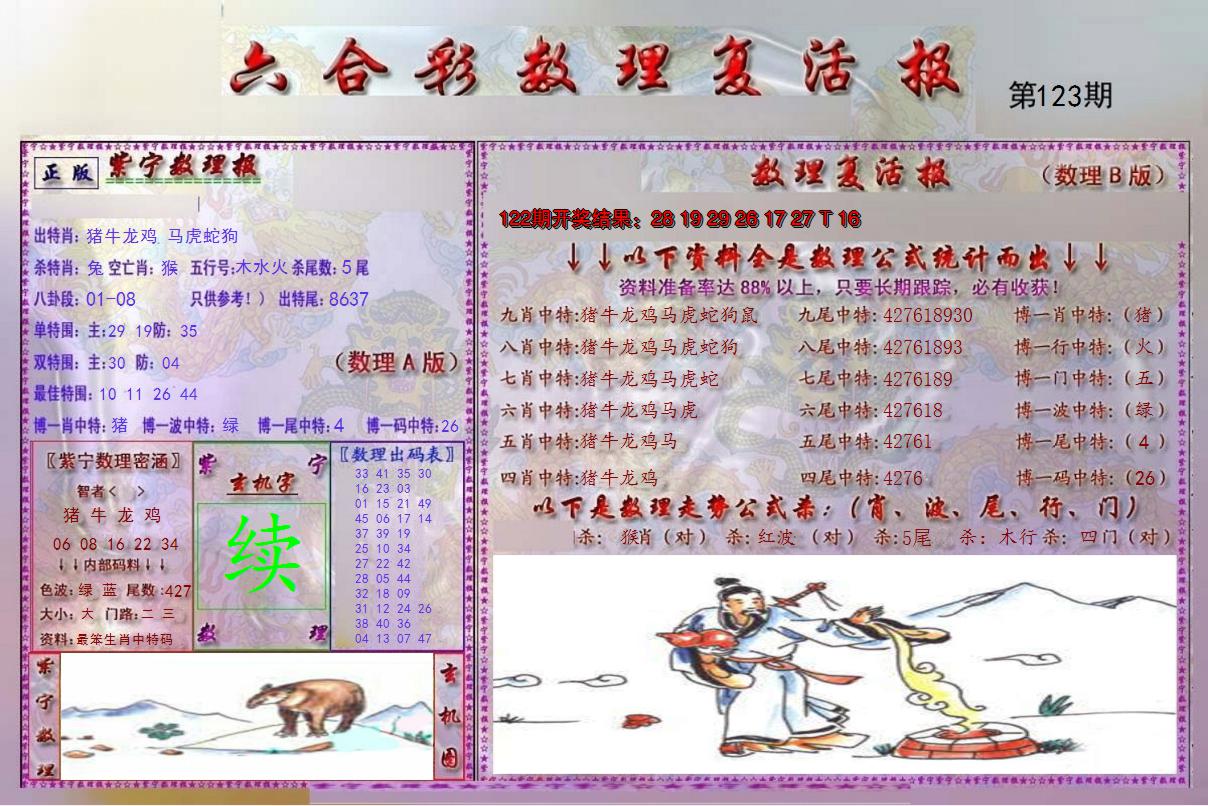 六合彩数理复活报
第123期
正版 紫宁数理报
出特肖: 猪牛龙鸡 马虎蛇狗
杀特肖: 兔 空亡肖: 猴 五行号:木水火 杀尾数: 5 尾
八卦段: 01-08 只供参考！） 出特尾: 8637
单特围: 主:29 19防: 35
双特围: 主:30 防: 04
（数理A版）
最佳特围: 10 11 26 44
博一肖中特: 猪 博一波中特: 绿 博一尾中特: 4 博一码中特:26
〖紫宁数理密涵〗
智者< >
猪 牛 龙 鸡
06 08 16 22 34
↓↓内部码料↓↓
色波: 绿 蓝 尾数:427
大小: 大 门路:二 三
资料: 最笨生肖中特码
紫 宁
玄机字
续
数 理
〖数理出码表〗
33 41 35 30
16 23 03
01 15 21 49
45 06 17 14
37 39 19
25 10 34
27 22 42
28 05 44
32 18 09
31 12 24 26
38 40 36
04 13 07 47
紫宁数理
玄机图
数理复活报
（数理B版）
122期开奖结果：28 19 29 26 17 27 T 16
↓↓以下资料全是数理公式统计而出↓↓
资料准备率达 88% 以上，只要长期跟踪，必有收获！
九肖中特:猪牛龙鸡马虎蛇狗鼠 九尾中特: 427618930 博一肖中特:（猪）
八肖中特:猪牛龙鸡马虎蛇狗 八尾中特: 42761893 博一行中特:（火）
七肖中特:猪牛龙鸡马虎蛇 七尾中特: 4276189 博一门中特:（五）
六肖中特:猪牛龙鸡马虎 六尾中特: 427618 博一波中特:（绿）
五肖中特:猪牛龙鸡马 五尾中特: 42761 博一尾中特:（4）
四肖中特:猪牛龙鸡 四尾中特: 4276 博一码中特:（26）
以下是数理走势公式杀:（肖、波、尾、行、门）
杀: 猴肖（对） 杀: 红波 （对） 杀:5尾 杀: 木行 杀: 四门（对）